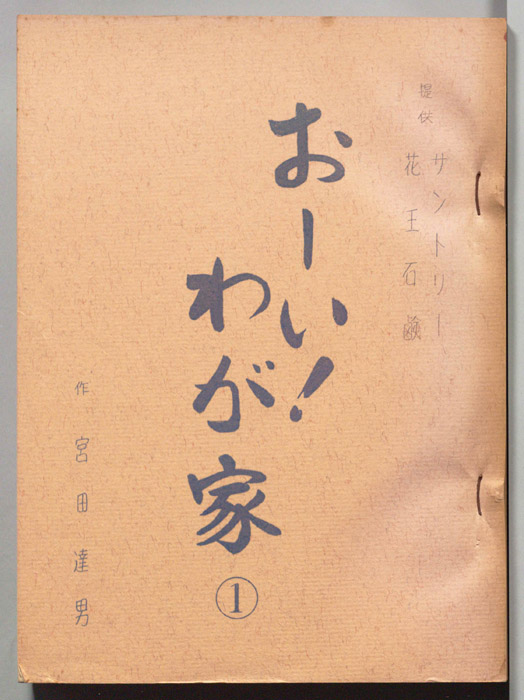 提供
サントリー
花王石鹸
おーい!
わが家
①
作 宮田達男